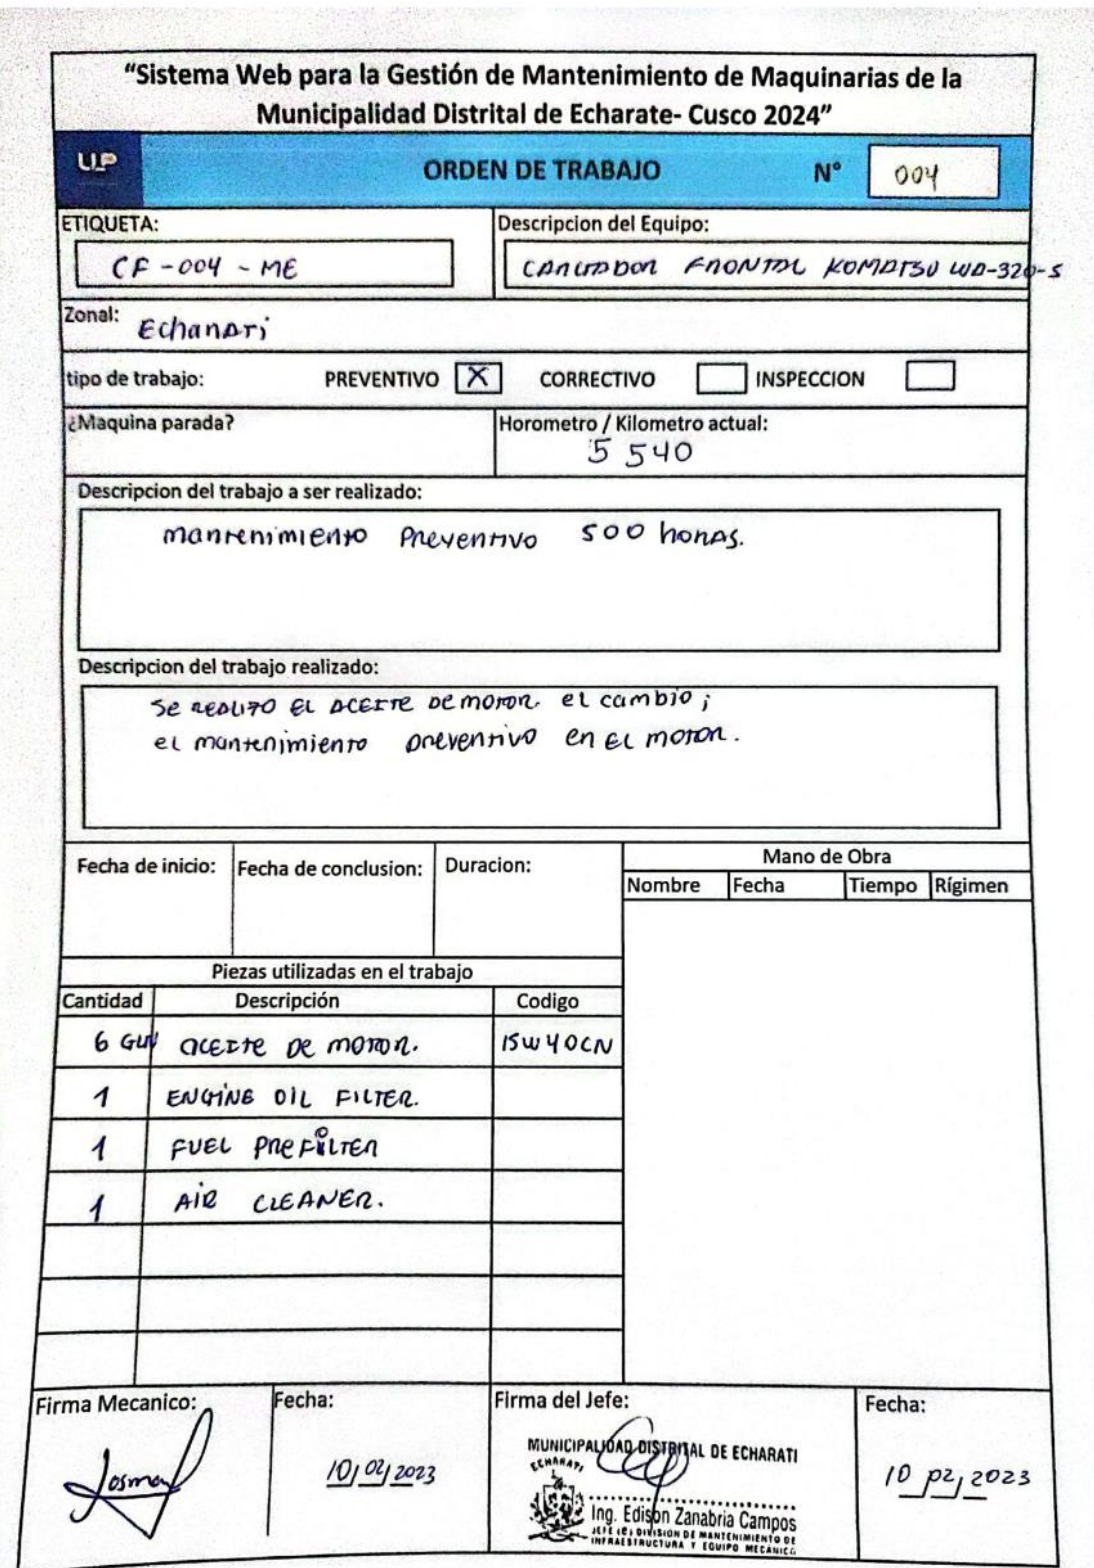 "Sistema Web para la Gestión de Mantenimiento de Maquinarias de la
Municipalidad Distrital de Echarate- Cusco 2024"
UP
ORDEN DE TRABAJO N° 004
ETIQUETA: Descripcion del Equipo:
CF-004-ME CARGADOR FRONTAL KOMATSU WA-320-5
Zonal: Echarati
tipo de trabajo: PREVENTIVO X CORRECTIVO INSPECCION
¿Maquina parada? Horometro / Kilometro actual:
5 540
Descripcion del trabajo a ser realizado:
mantenimiento Preventivo 500 horas.
Descripcion del trabajo realizado:
Se realizo el aceite de motor. el cambio;
el mantenimiento preventivo en el motor.
Fecha de inicio: Fecha de conclusion: Duracion: Mano de Obra
Nombre Fecha Tiempo Rígimen
Piezas utilizadas en el trabajo
Cantidad Descripción Codigo
6 aceite de motor. 15W40CN
1 ENGINE OIL FILTER.
1 FUEL PREFILTER
1 AIR CLEANER.
Firma Mecanico: Fecha: Firma del Jefe: Fecha:
MUNICIPALIDAD DISTRITAL DE ECHARATI
ECHARATI
10/02/2023 10 02/2023
Ing. Edison Zanabria Campos
JEFE (e) DIVISIÓN DE MANTENIMIENTO DE
INFRAESTRUCTURA Y EQUIPO MECÁNICO